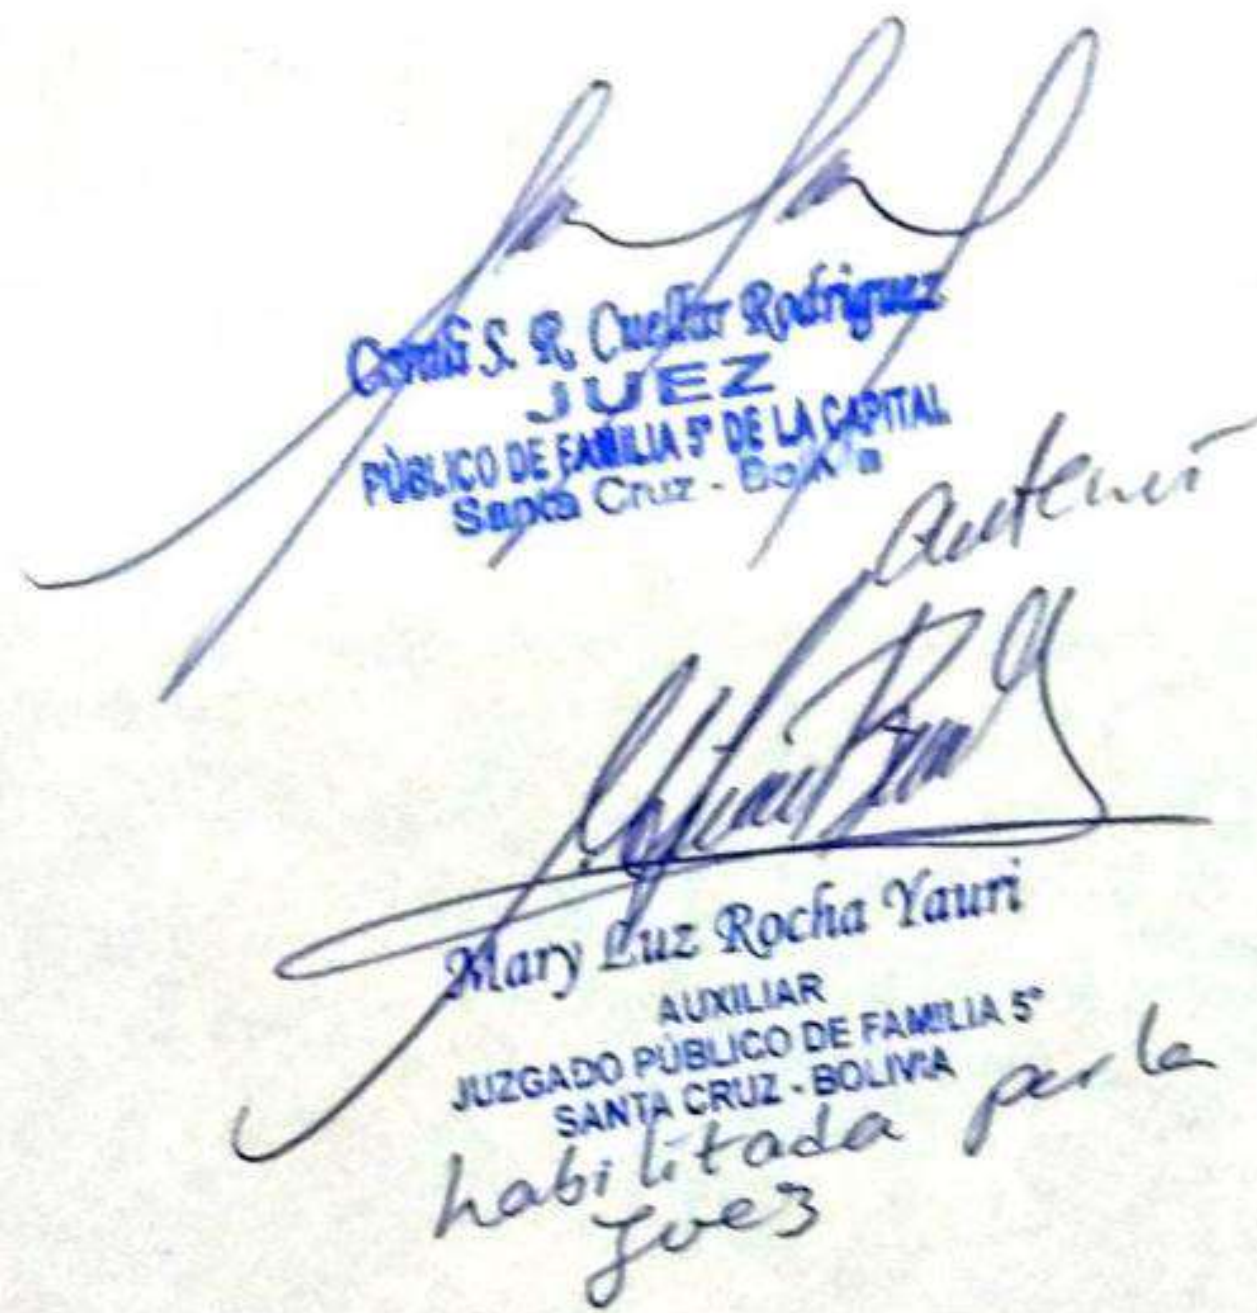 S. R. Cuellar Rodriguez
JUEZ
PÙBLICO DE FAMILIA 5º DE LA CAPITAL
Santa Cruz - Bolivia
Mary Luz Rocha Yauri
AUXILIAR
JUZGADO PÙBLICO DE FAMILIA 5º
SANTA CRUZ - BOLIVIA
habilitada por la
Juez